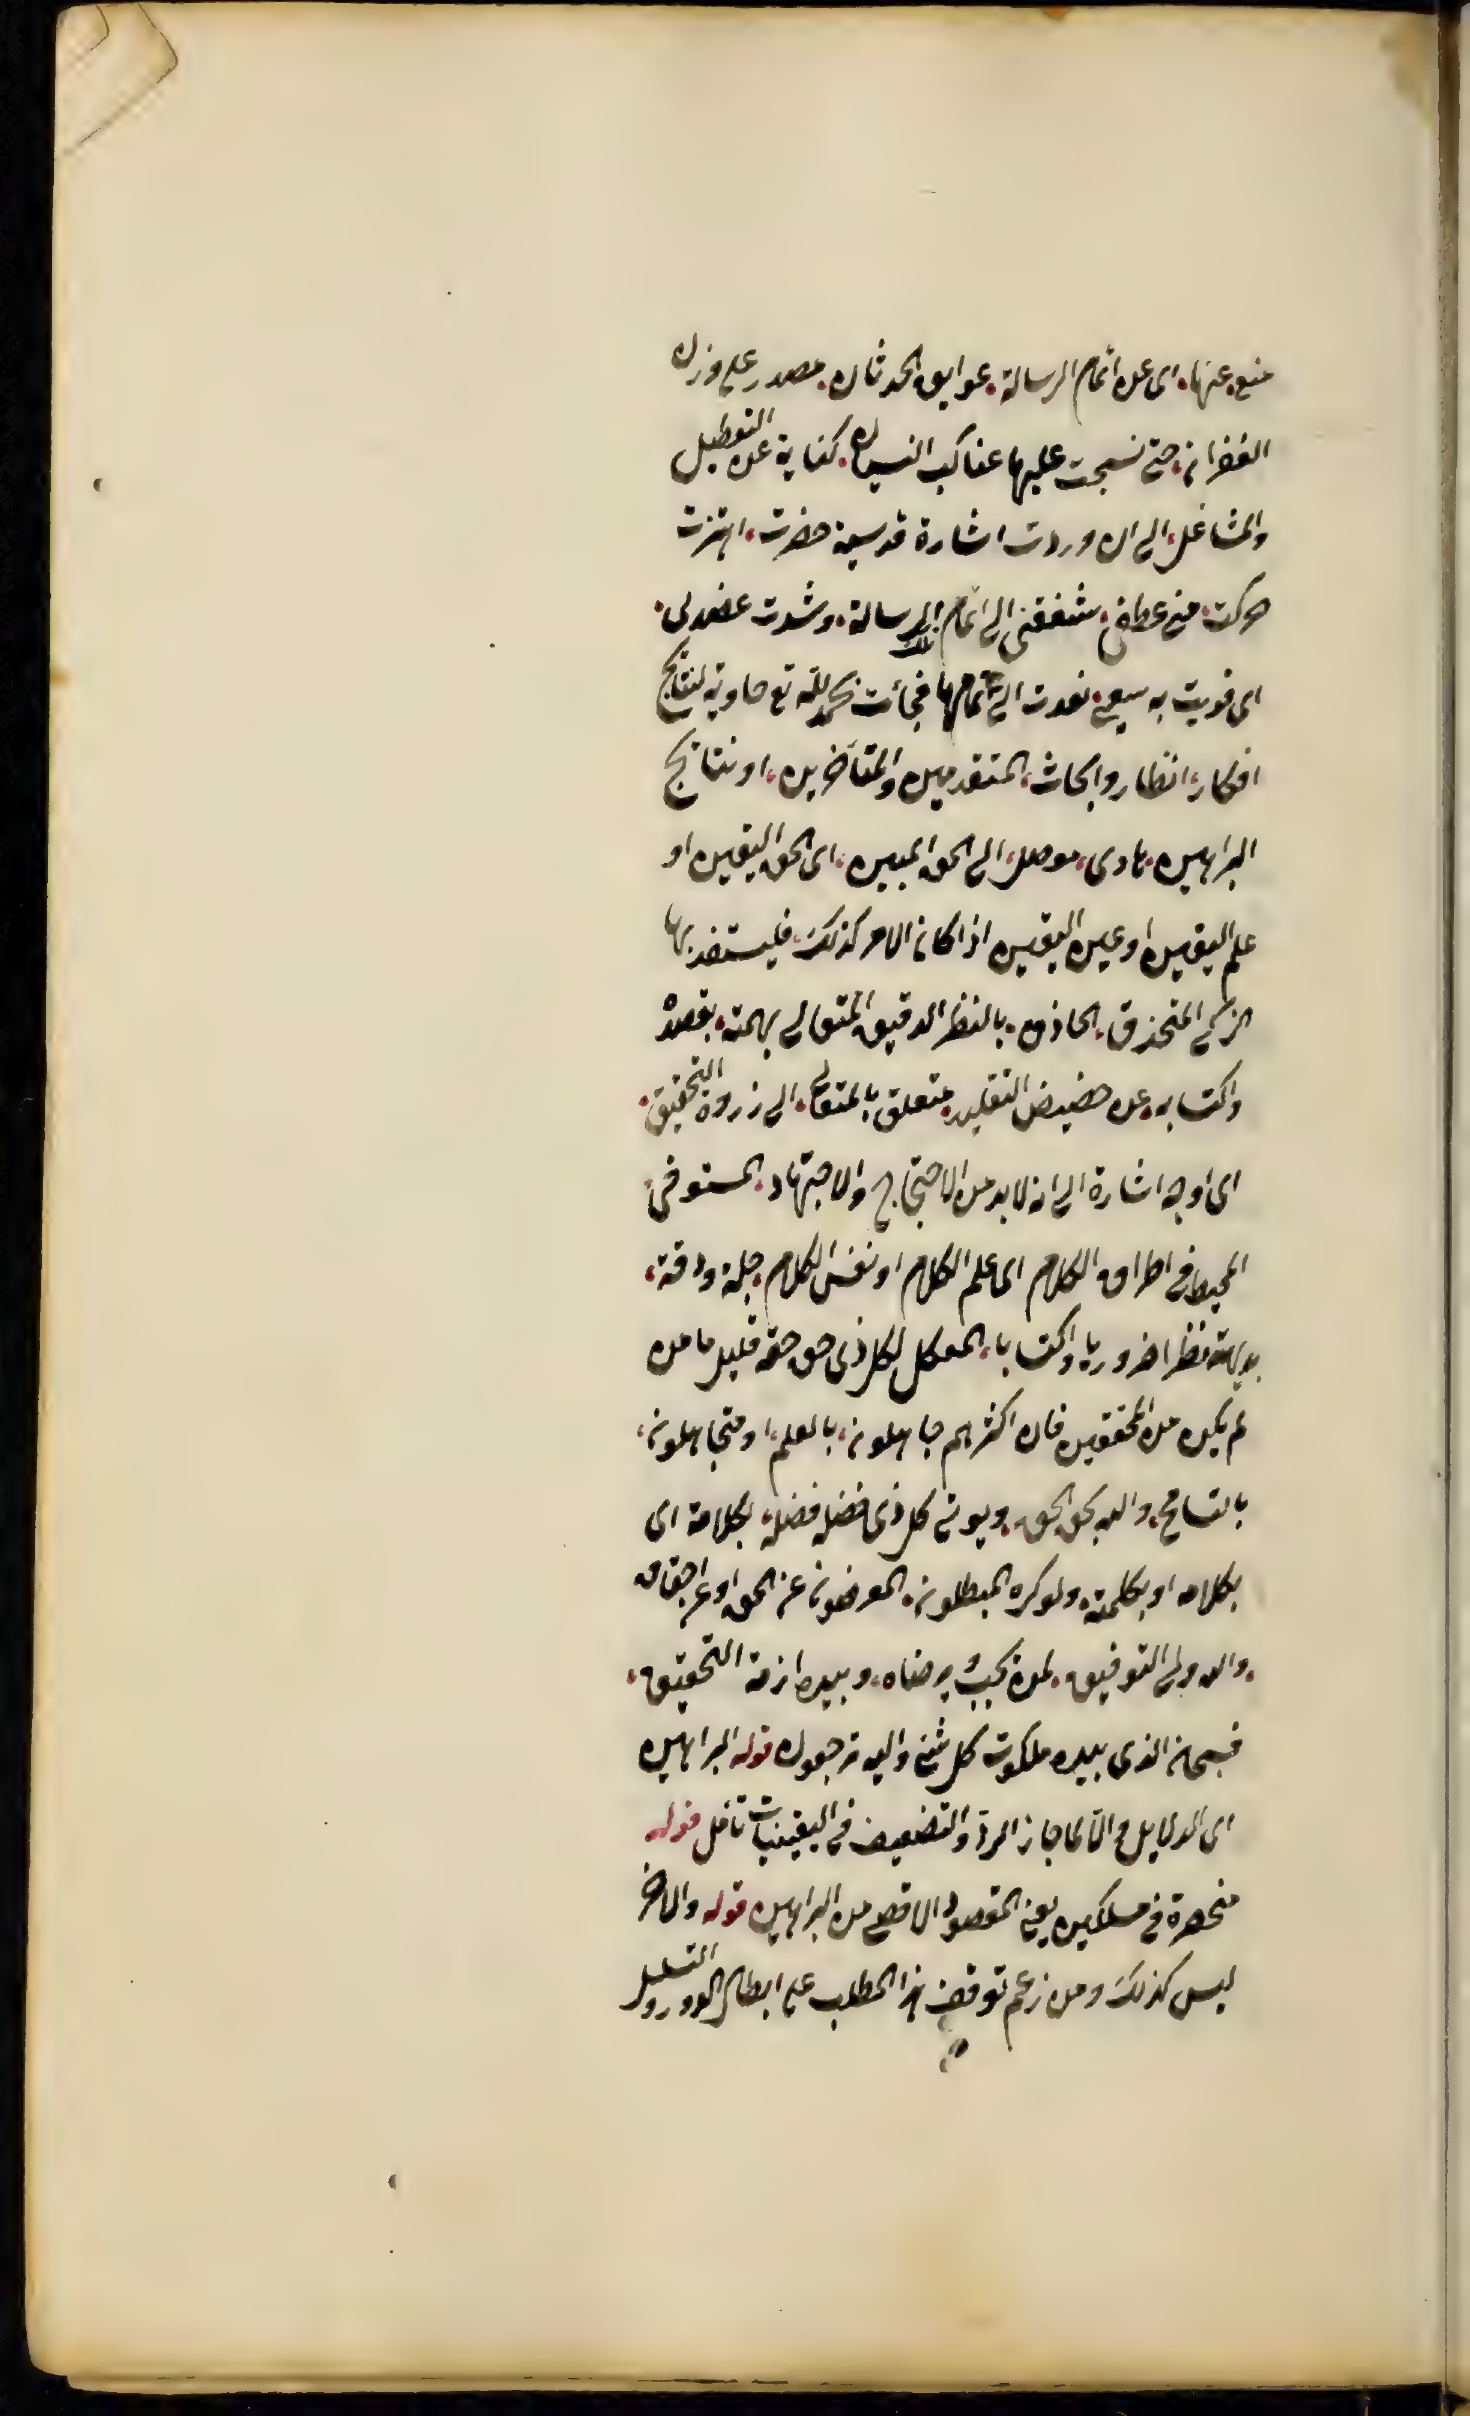 منع عنها. اى عن اتمام الرسالة. عوايق الحدثان. مصدر على وزن
الغفران. حتى نسجت عليها عناكب النسيان. كناية عن التعطيل
والمشاغل. الى ان وردت اشارة قدسية حضرت. اهتزت
حركت. منى عطفى. شغفتنى الى اتمام تلك الرسالة. وشدت عضدى.
اى قويت به سيعى. فعدت الى اتمامها فجأت بحمد لله تع حاوية لنتايج
افكار. انظار وابحاث. المتقدمين والمتأخرين. او نتائج
البراهين. هادى. موصل. الى الحق المبين. اى الحق اليقين او
علم اليقين او عين اليقين اذا كان الامر كذلك. فليستفد بها
الزكى المتحذق. الحاذق. بالنظر الدقيق المتعالى بهمته. بقصده
واكتسابه. عن حضيض التقليد. متعلق بالمتعالى. الى زروة التحقيق.
اى اوجه اشارة الى انه لا بد من الاحتجاج والاجتهاد. المستوفى.
المحيط فى اطراف الكلام اى علم الكلام او نفس الكلام. جلة ودقة.
بديهة نظرا ضروريا واكتسابا. المعكل لكل ذى حق حقه قليل ما من
لم يكن من المحققين فان اكثرهم جاهلون. بالعلم. او متجاهلون.
بالتسامح. والله يحق الحق. ويوتى كل ذى فضل فضله. بكلامة اى
بكلامه او بكلمته. ولو كره المبطلون. المعرضون عن الحق او عن احقاقه
. والله ولى التوفيق. لمن يحب ويرضاه. وبيده ازمة التحقيق.
فسبحان الذى بيده ملكوت كل شئ واليه ترجعون قوله البراهين
اى الدلايل و الا لما جاز الرد والتضعيف فى اليقينيات تأمل قوله
منحصرة فى مسلكين يعنى المقصود الاقصى من البراهين قوله والاخر
ليس كذلك ومن زعم توقف هذا المطلب على ابطال الدور والتسلسل